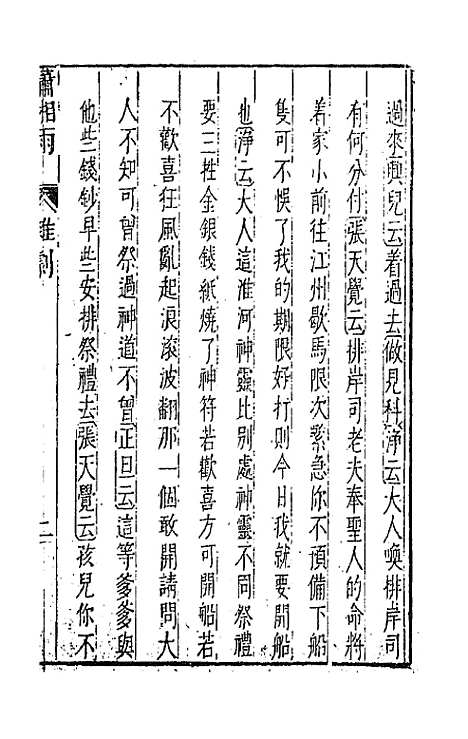 過來興兒云着過去做見科淨云大人喚排岸司
有何分付張天覺云排岸司老夫奉聖人的命將
着家小前往江州歇馬限次緊急你不預備下船
隻可不悞了我的期限好打則今日我就要開船
也淨云大人這淮河神靈比別處神靈不同祭禮
要三牲金銀錢紙燒了神符若歡喜方可開船若
不歡喜狂風亂起浪滚波翻那一個敢開請問大
人不知可曾祭過神道不曾正旦云這等爹爹與
他些錢鈔早些安排祭禮去張天覺云孩兒你不
瀟湘雨 雜劇 二